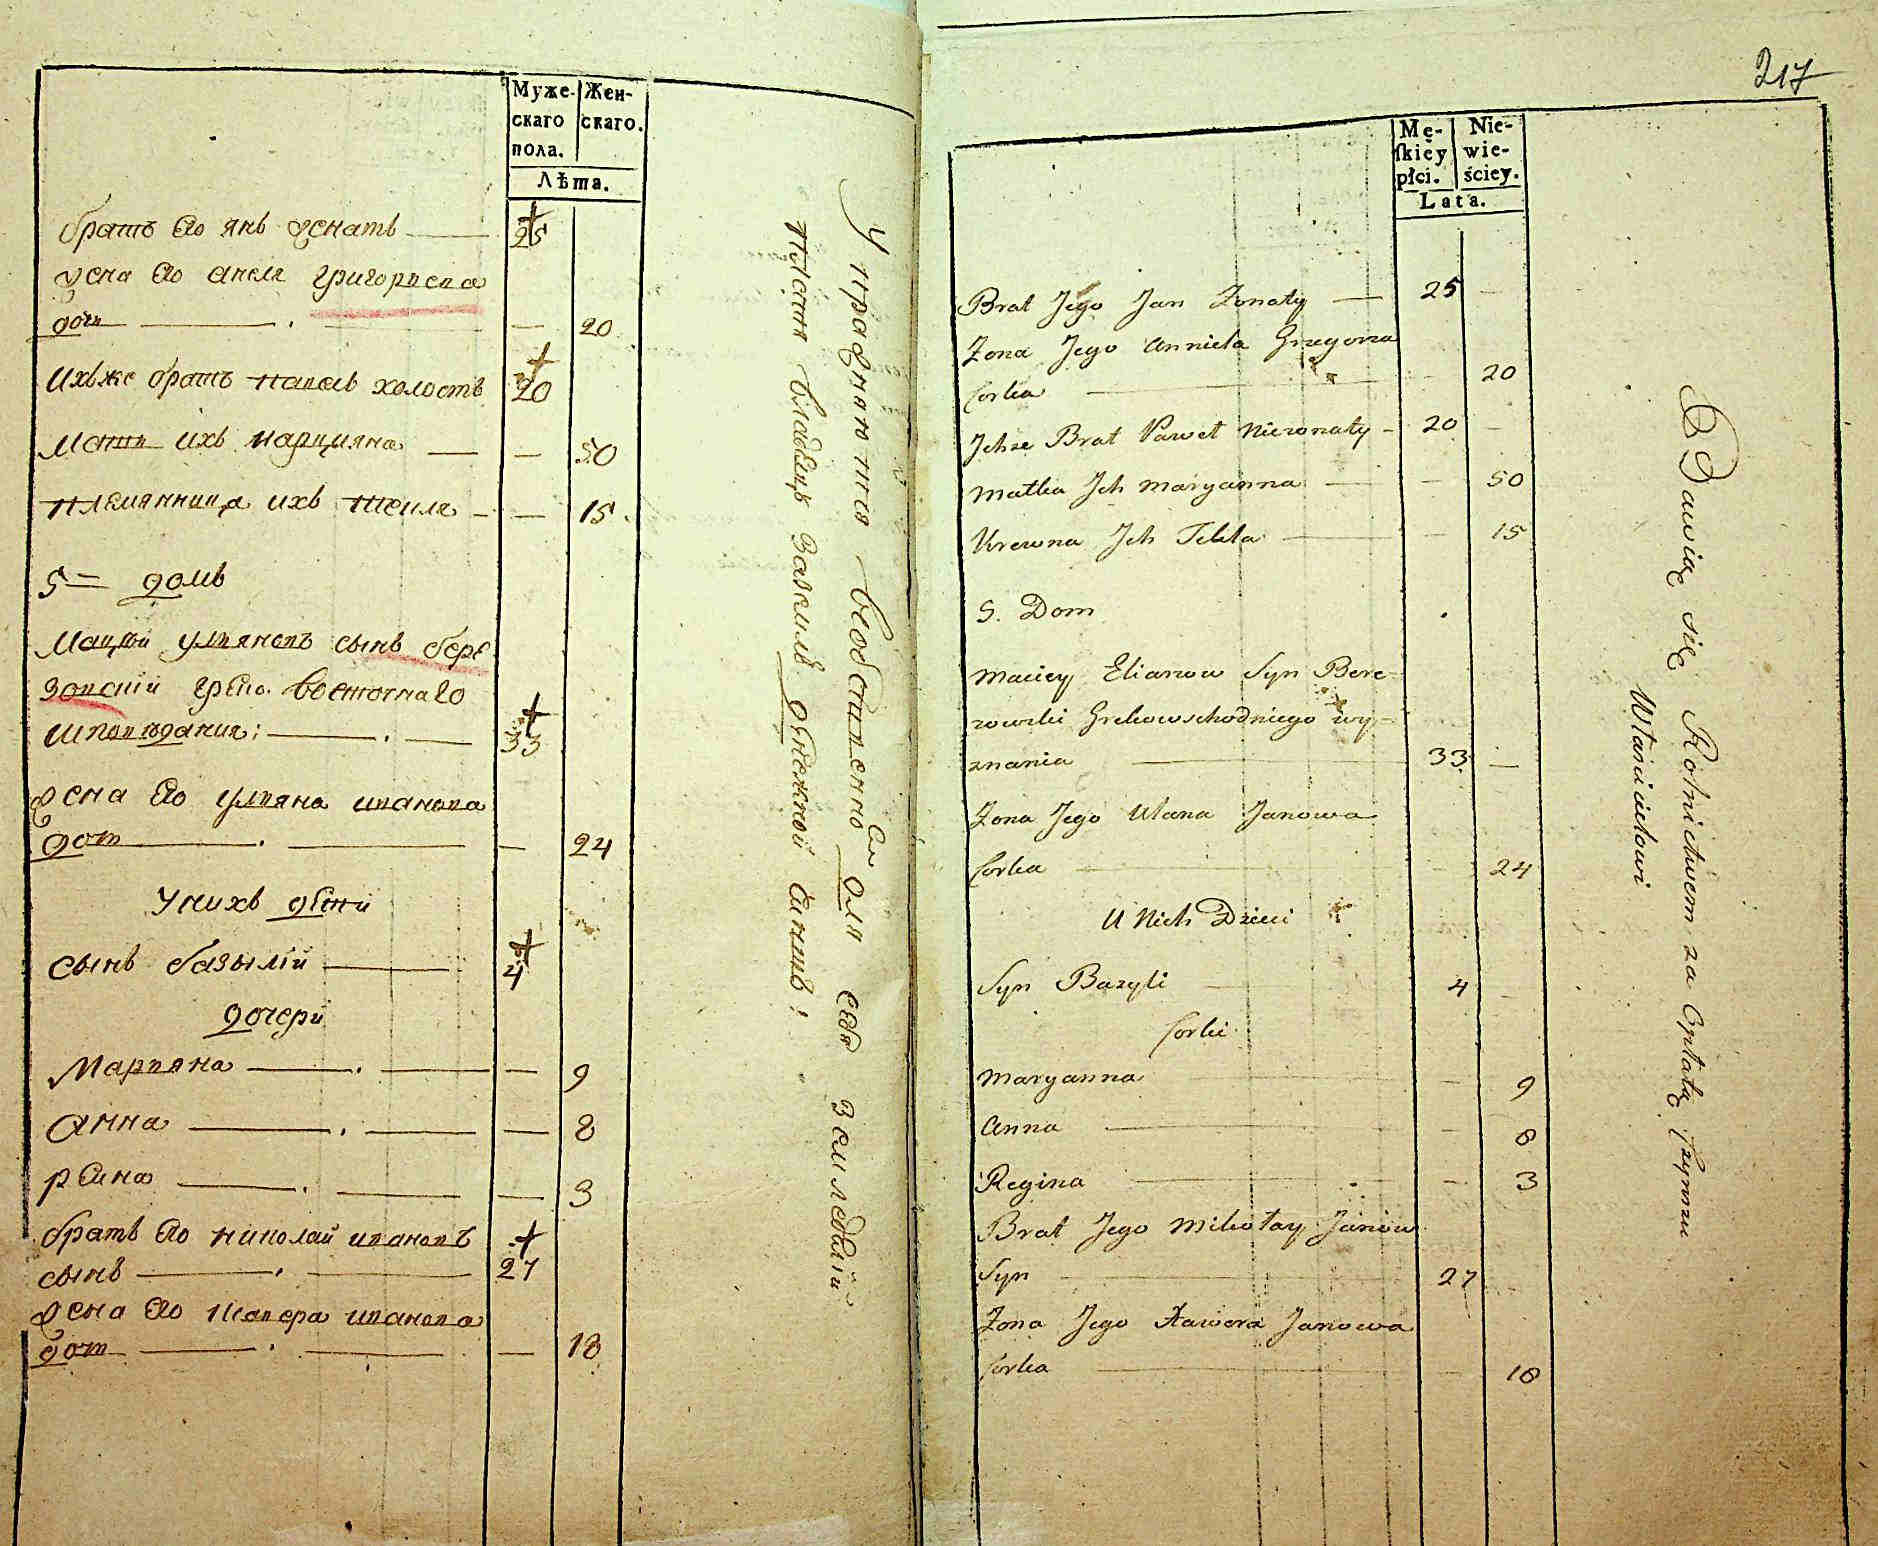 Муже-
скаго
пола.
Жен-
скаго.
Лѣта.
братъ его янъ женатъ
25
жена его анеля григорьева
доч
20
Ихъже братъ павелъ холостъ
20
Мать ихъ марцияна
50
племянница ихъ текля
15
5 = домъ
Мацѣй ульяновъ сынъ бере
зовскій греко. восточнаго
исповѣдания:
33
жена его ульяна иванова
доч
24
У нихъ дѣти
сынъ базылій
4
дочери
Марьяна
9
анна
8
регина
3
братъ его николай ивановъ
сынъ
27
жена его шавера иванова
доч
18
Упражняются въ собственно для себя земледѣлій
платя владѣцу за землѣ денежной чиншъ:
217
Mę-
ſkiey
płci.
Nie-
wie-
ściey.
Lata.
Brat Jego Jan Żonaty 25
Zona Jego Anniela Grzegorza
Corka 20
Ichże Brat Paweł Nieżonaty 20
Matka Ich Maryanna 50
Krewna Ich Tekla 15
5. Dom
Maciey Elianow Syn Bere-
zowski Grekowschodniego wy-
znania 33
Zona Jego Ulana Janowa
Corka 24
U Nich Dzieci
Syn Bazyli 4
Corki
Maryanna 9
Anna 8
Regina 3
Brat Jego Mikołay Janow
Syn 27
Zona Jego Xawera Janowa
Corka 18
Bawią się Rolnictwem za Opłatą Czynszu
Właścicielowi